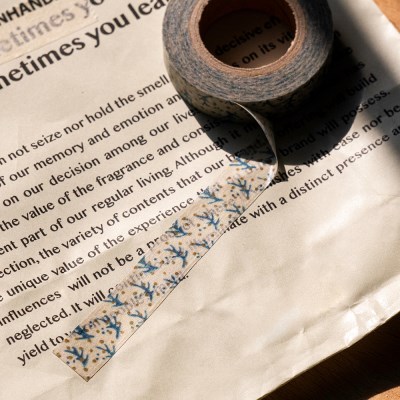 NHAND
metimes yo
metimes you lea
decisive eff
n not seize nor hold the smell on its vib
of our memory and emotion an
on our decision among our live
the value of the fragrance and con build
ent part of our regular living. Although it brand will possess.
ection, the variety of contents that our with ease nor be
e unique value of the experience distinct presence a
influences will not be a pa ate with a
neglected. It will
yield to